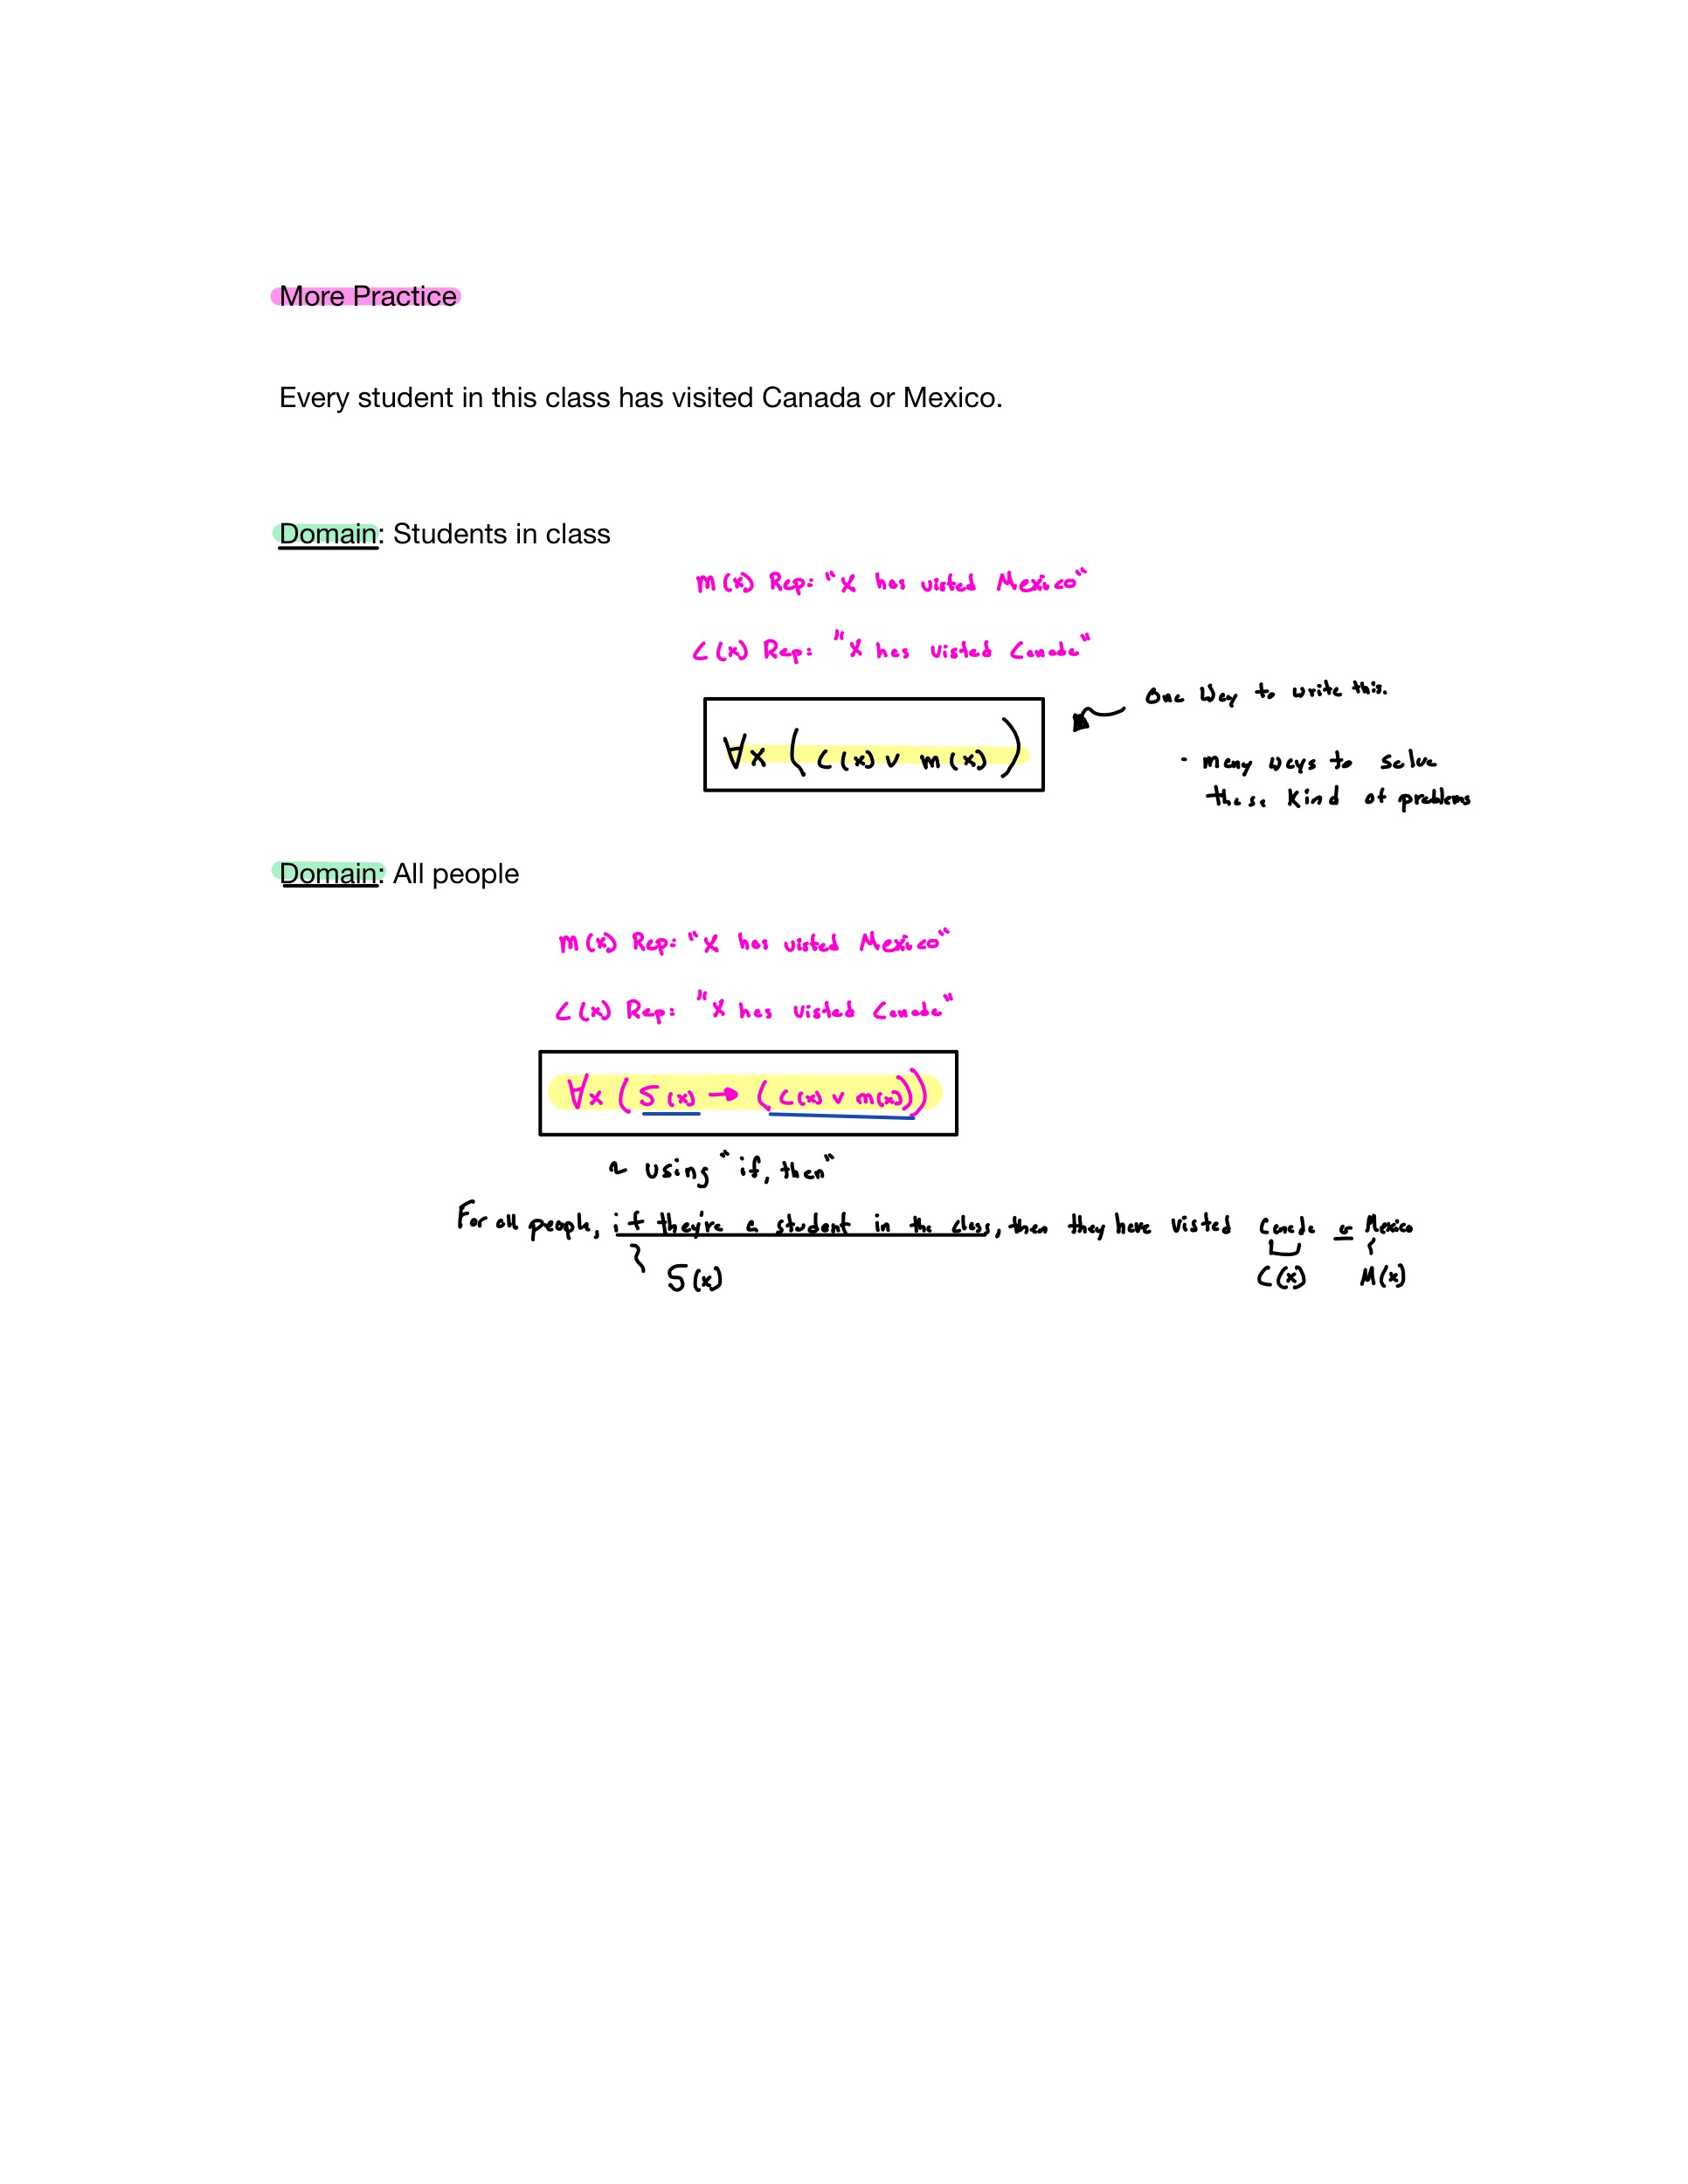 More Practice
Every student in this class has visited Canada or Mexico.
Domain: Students in class
m(x) Rep: "X has visted Mexico"
C(x) Rep: "X has Visted Canada"
One Way to write this.
∀x (C(x) ∨ m(x))
• many ways to solve
these kind of problems
Domain: All people
m(x) Rep: "X has visted Mexico"
C(x) Rep: "X has Visted Canada"
∀x (S(x) → (C(x) ∨ m(x)))
~ using "if, then"
For all people, if they're a student in the class, then they have visted Canada or Mexico
S(x) C(x) M(x)